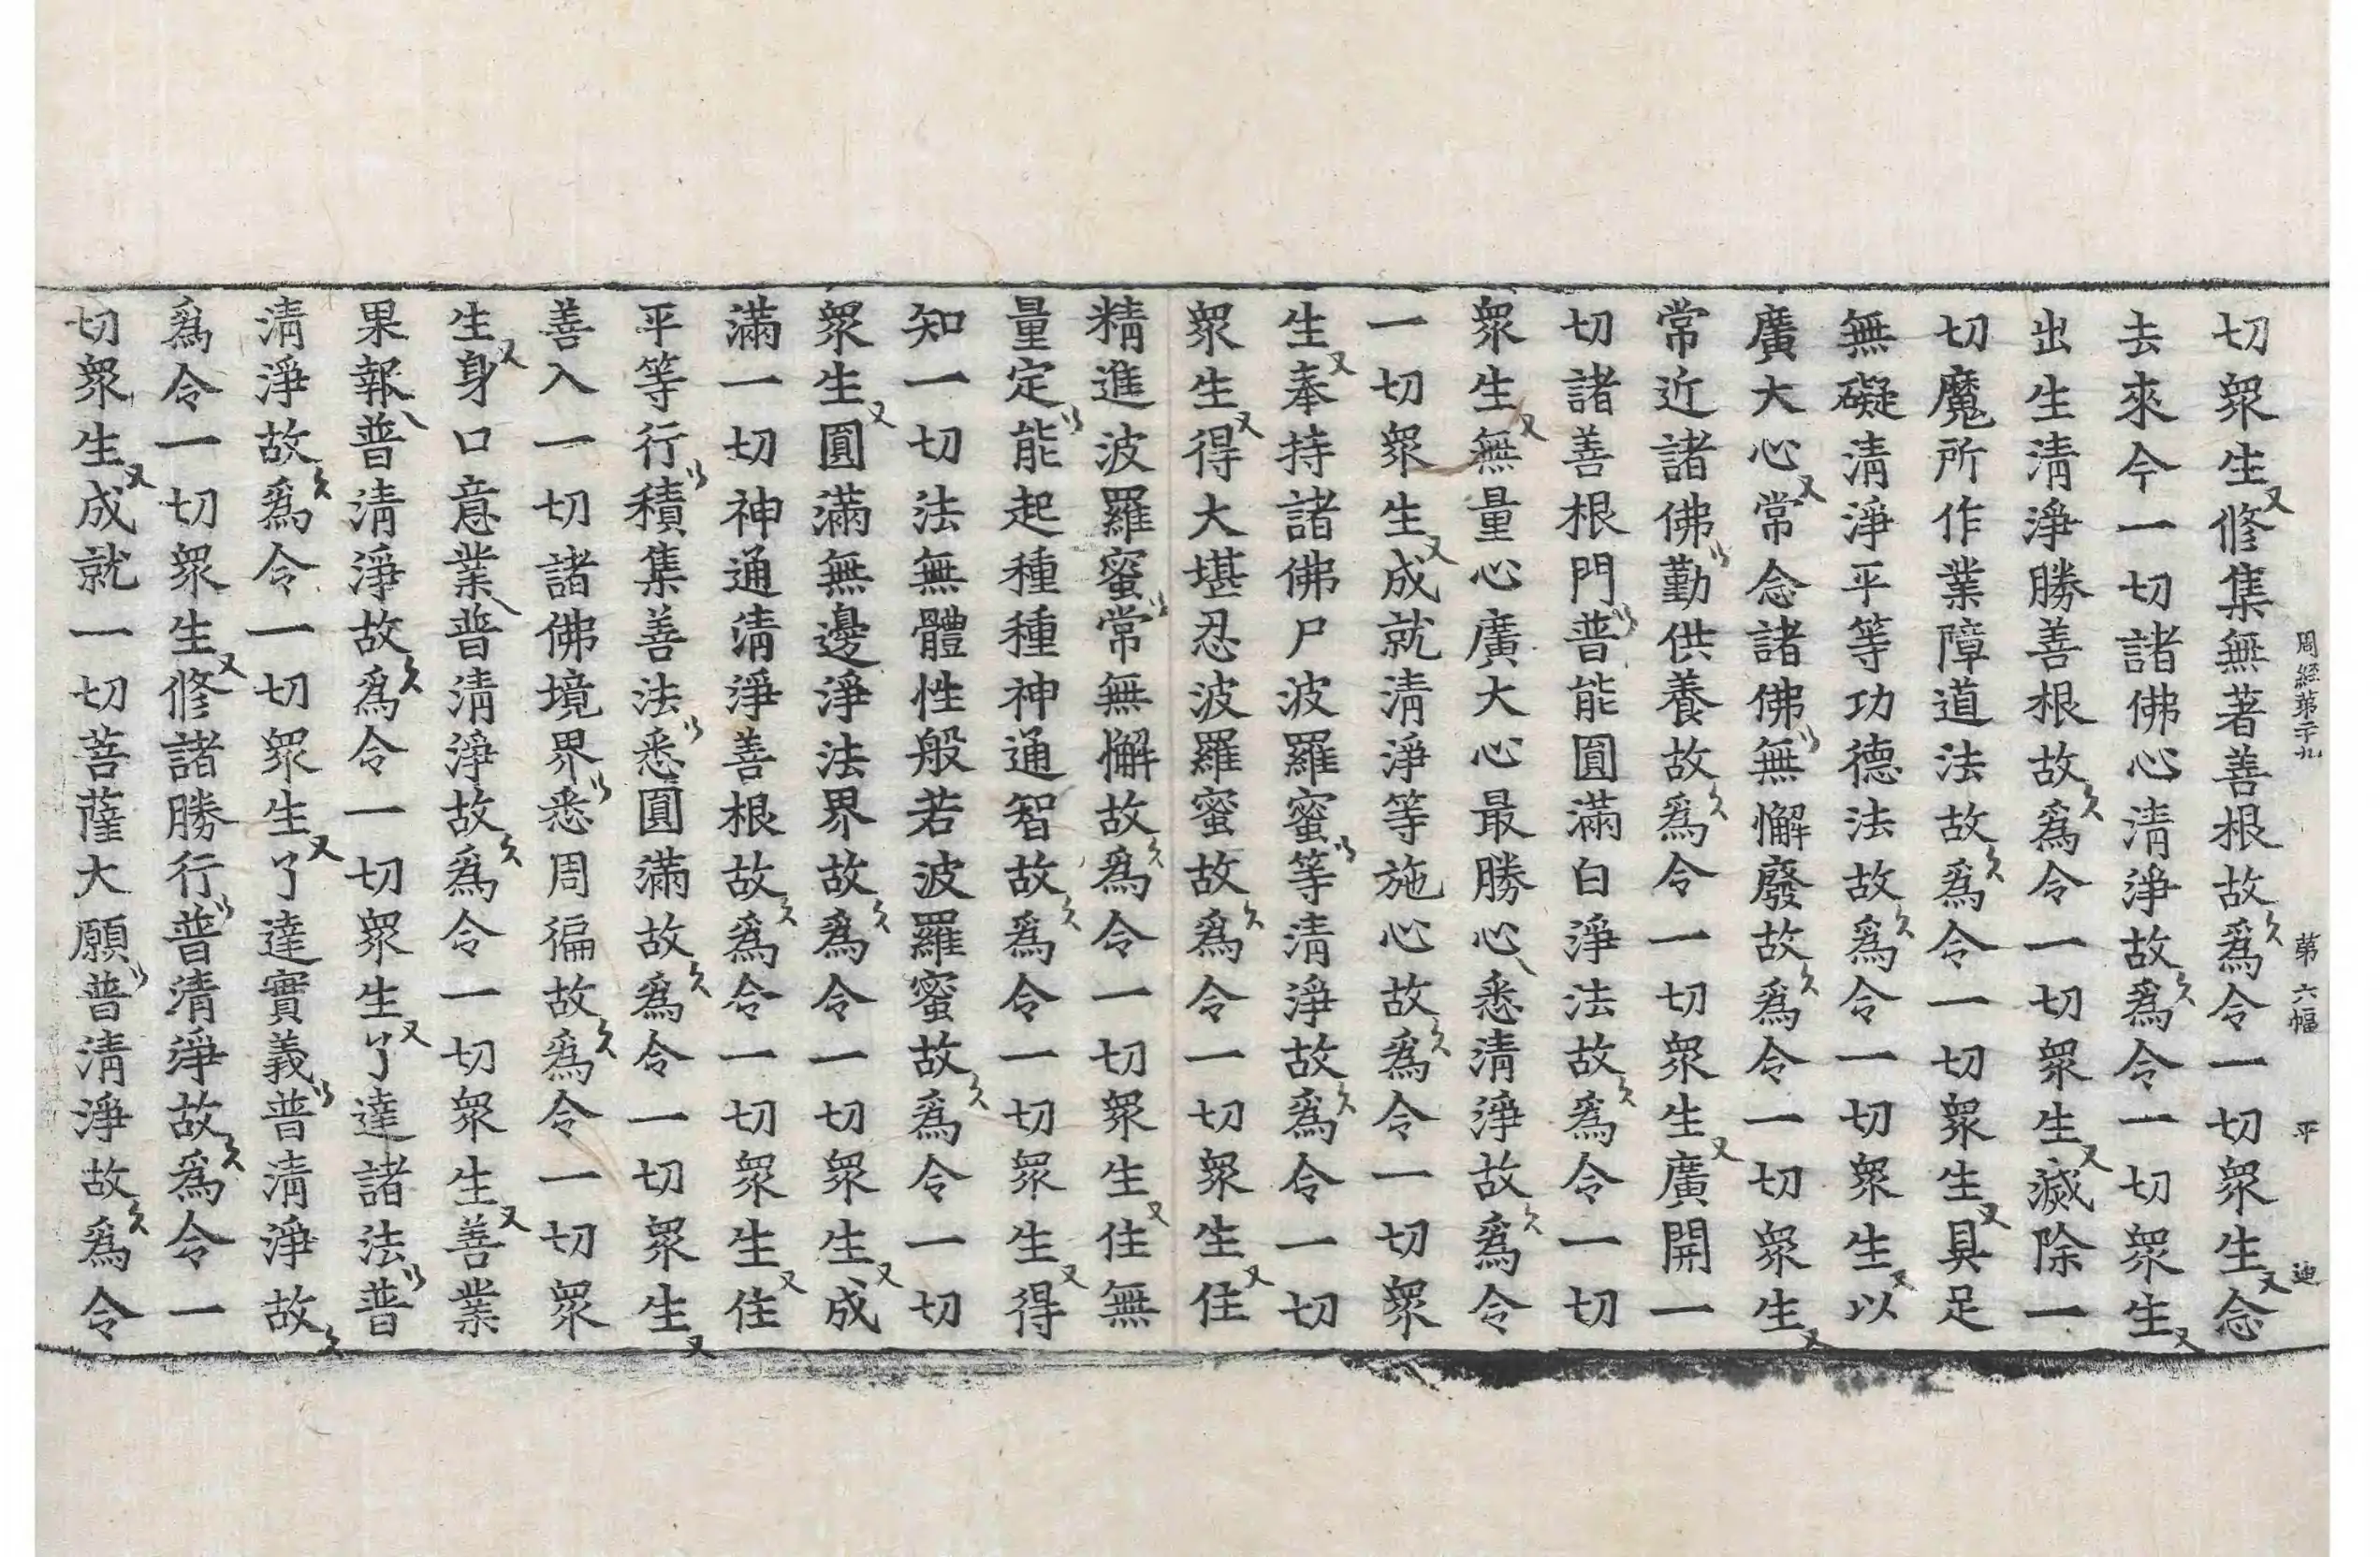 周經第二十九 第六幅 平 迪
切眾生修集無著善根故爲令一切眾生念
去來今一切諸佛心清淨故爲令一切眾生
出生清淨勝善根故爲令一切眾生滅除一
切魔所作業障道法故爲令一切眾生具足
無礙清淨平等功德法故爲令一切眾生以
廣大心常念諸佛無懈廢故爲令一切眾生
常近諸佛勤供養故爲令一切眾生廣開一
切諸善根門普能圓滿白淨法故爲令一切
眾生無量心廣大心最勝心悉清淨故爲令
一切眾生成就清淨等施心故爲令一切眾
生奉持諸佛尸波羅蜜等清淨故爲令一切
眾生得大堪忍波羅蜜故爲令一切眾生住
精進波羅蜜常無懈故爲令一切眾生住無
量定能起種種神通智故爲令一切眾生得
知一切法無體性般若波羅蜜故爲令一切
眾生圓滿無邊淨法界故爲令一切眾生成
滿一切神通清淨善根故爲令一切眾生住
平等行積集善法悉圓滿故爲令一切眾生
善入一切諸佛境界悉周徧故爲令一切眾
生身口意業普清淨故爲令一切眾生善業
果報普清淨故爲令一切眾生了達諸法普
清淨故爲令一切眾生了達實義普清淨故
爲令一切眾生修諸勝行普清淨故爲令一
切眾生成就一切菩薩大願普清淨故爲令